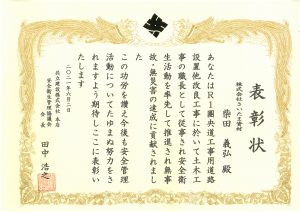 表彰状
株式会社さいたま資材
柴田 義弘 殿
あなたは区1圏央道工事用道路
設置他改良工事に於いて土木工
事の職長として従事され安全衛
生活動を率先して推進され無事
故・無災害の達成に貢献されまし
た
この功労を讃え今後も安全管理
活動についてたゆまぬ努力をさ
れますよう期待しここに表彰い
たします
二〇二一年六月二日
株式会社 本店
安全衛生管理協議会
会長 田中 浩之